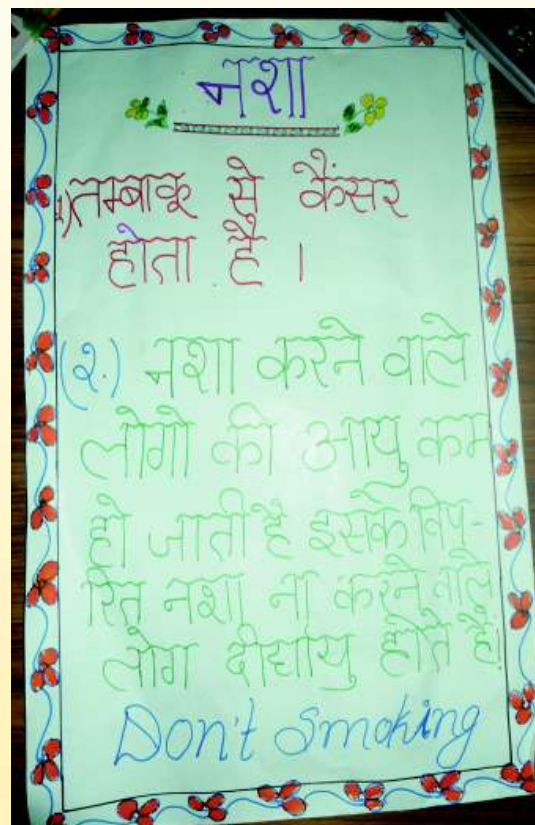 नशा
१)तम्बाकू से कैंसर
होता है ।
(२.) नशा करने वाले
लोगो की आयु कम
हो जाती है इसके विपु-
रित नशा ना करने वाले
लोग दीर्घायु होते है।
Don't Smoking